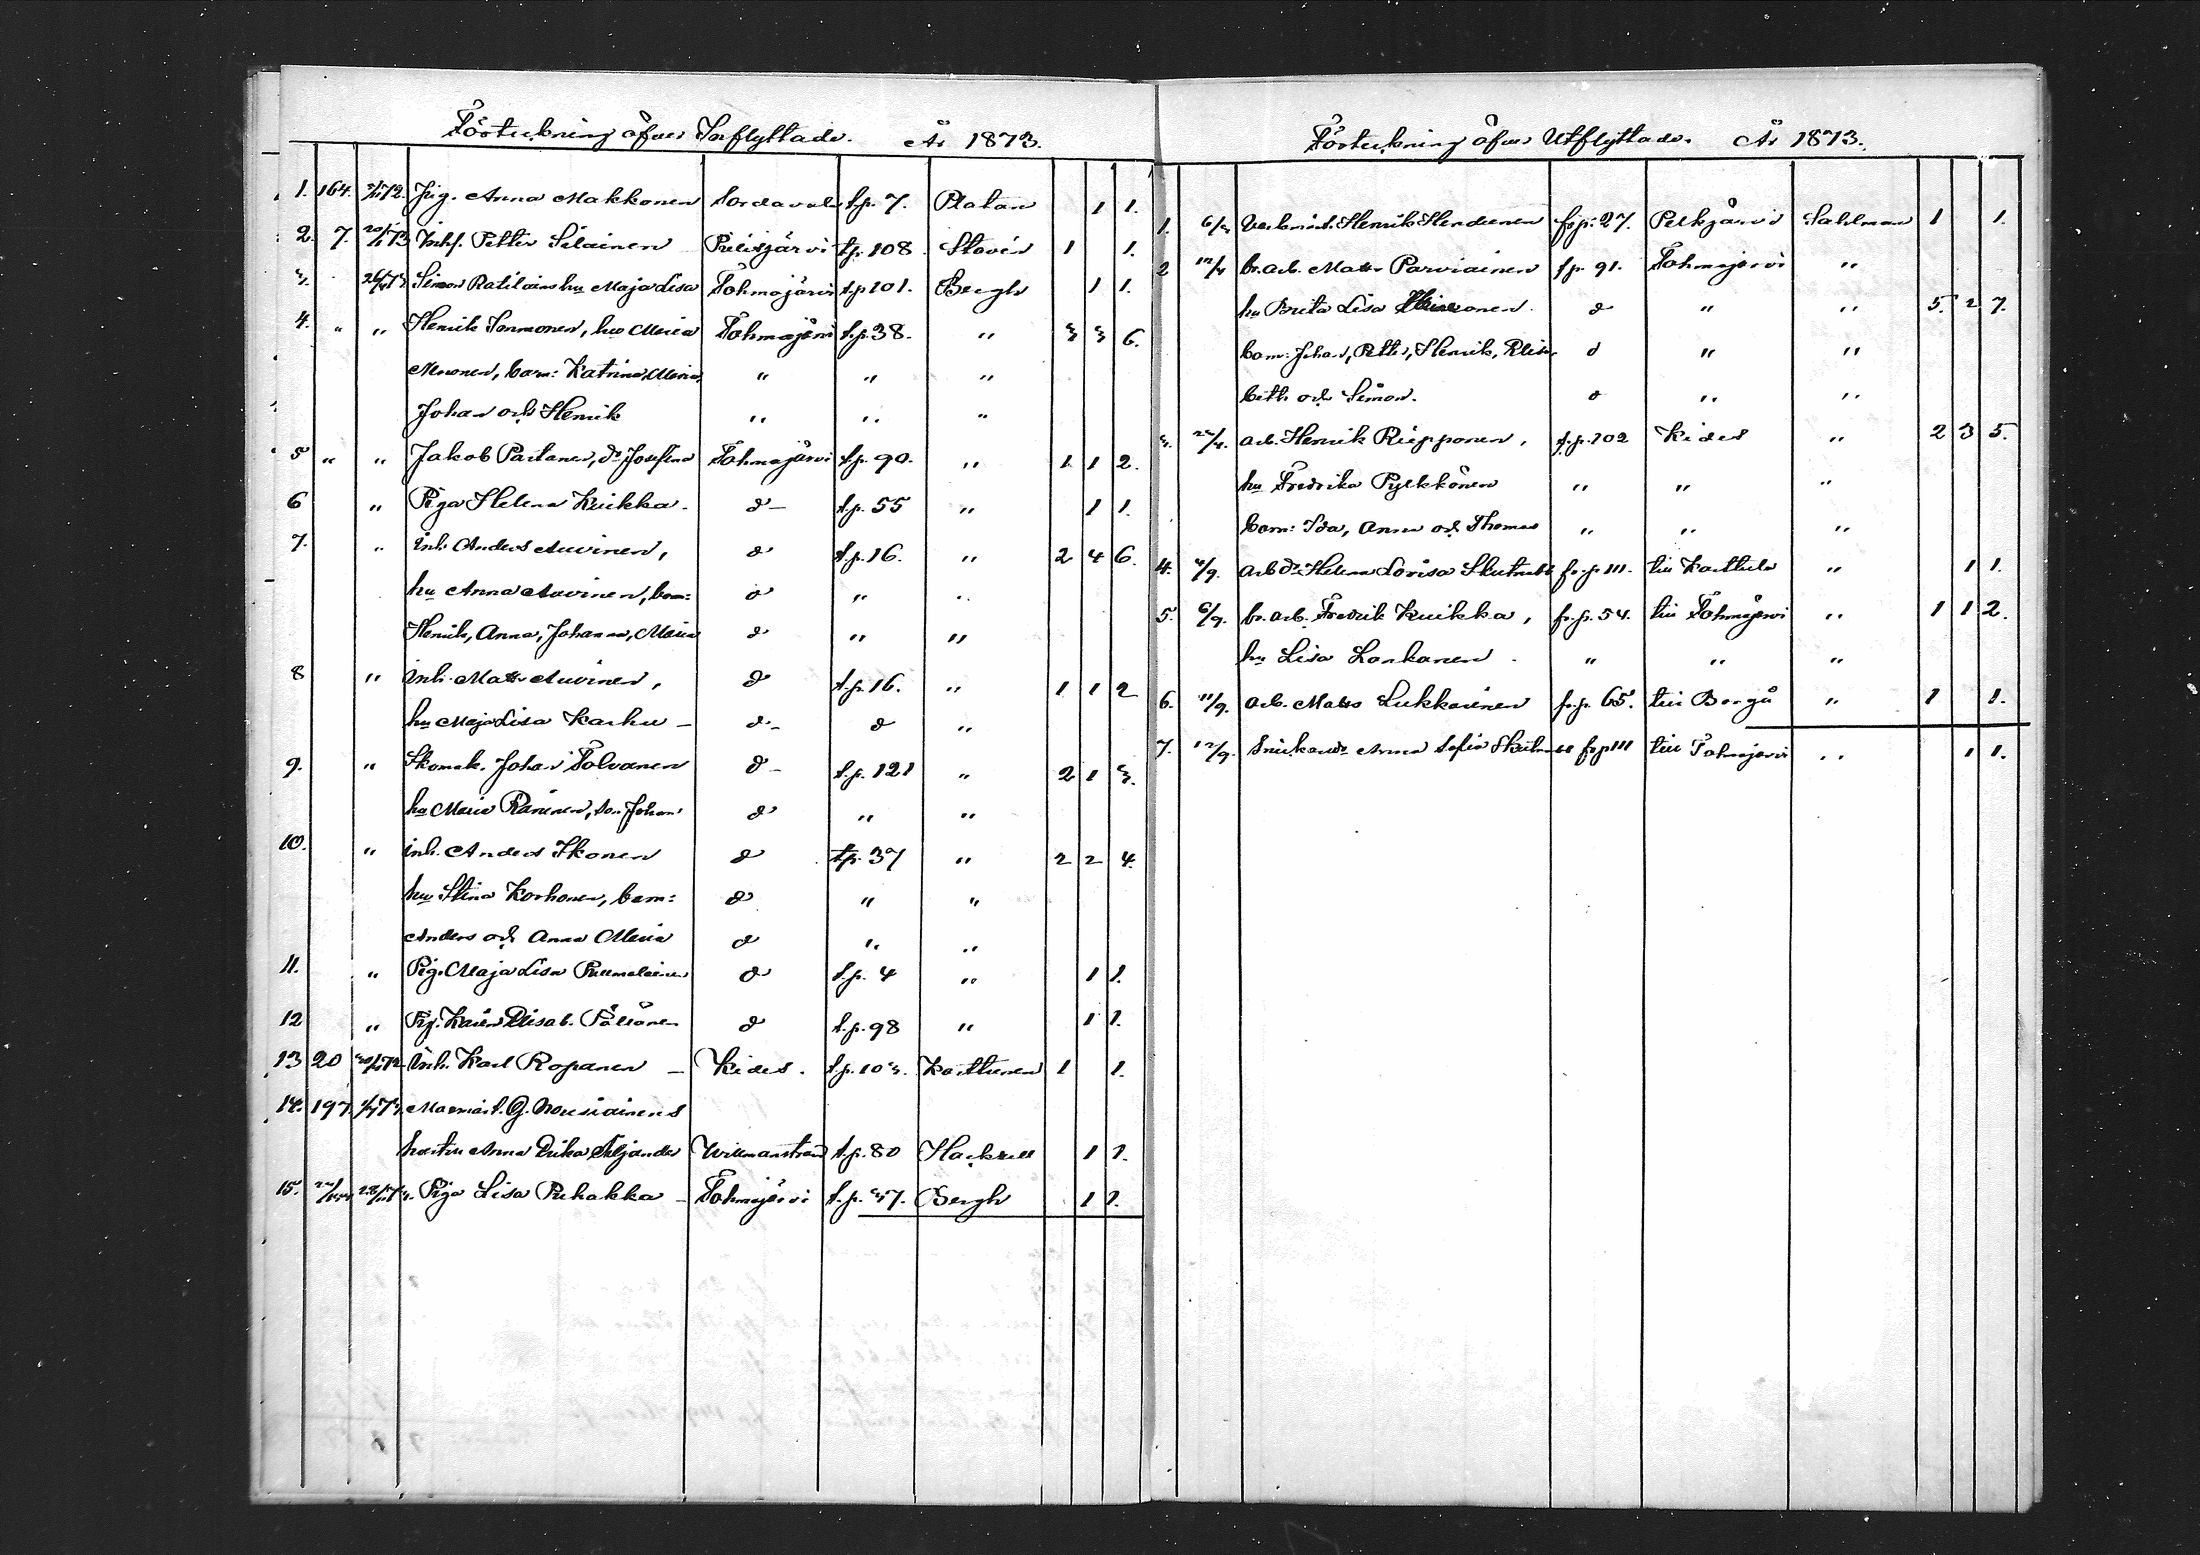 Förteckning öfver Inflyttade. År 1873.
1. 164. Pig. Anna Makkonen Sordavala t.p. 7. Platan 1 1.
2. 7. Inhs. Petter Silainen Pelkjärvi t.p. 108 Stovén 1 1.
3. Simon Ratilains hu Maja Lisa Tohmajärvi t.p. 101. Bergh 1 1.
4. " " Henrik Sormonen, hu Maria Tohmajärvi t.p. 38. " 3 3 6.
Muonen, barn: Katrina, Maria, " " "
Johan och Henrik " " "
5 " " Jakob Partanen, dr Josefina Tohmajärvi t.p. 90. " 1 1 2.
6 " Piga Helena Kuikka. d– t.p. 55 " 1 1.
7. " Inh. Anders Auvinen, d t.p. 16. " 2 4 6.
hu Anna Auvinen, barn: d " "
Henrik, Anna, Johanna, Maria d " "
8 " inh. Matts Auvinen, d t.p. 16. " 1 1 2
hu Maja Lisa Karhu – d– d "
9. " Skomak. Johan Tolvanen d– t.p. 121 " 2 1 3.
hu Maria Räninen, son Johan d " "
10. " inh. Anders Ikonen d t.p. 37 " 2 2 4.
hu Stina Korhonen, barn: d " "
Anders och Anna Maria d " "
11. " Pig. Maja Lisa d t.p. 4 " 1 1.
12 " Pig. Karin Elisab. Pöllönen d t.p. 98 " 1 1.
13 20 Inh. Karl Ropanen – Kides. t.p. 103. Karttunen 1 1.
14. 197 G. Nousiainens
hustru Anna Erika Willmanstrand t.p. 80 Hackzell 1 1.
15. Piga Lisa Puhakka – Tohmajärvi t.p. 37. Bergh 1 1.
Förteckning öfver Utflyttade. År 1873.
1. 6/3 Henrik Hendunen fr.p. 27. Pelkjärvi Sahlman 1 1.
2 12/4 br. arb. Matts Parviainen f.p. 91. Tohmajärvi "
hu Brita Lisa d " " 5. 2 7.
barn: Johan, Petter, Henrik, Elisa- d " "
beth och Simon. d " "
3. arb. Henrik Riepponen, f.p. 102 Kides " 2 3 5.
hu Fredrika Pylkkönen " " "
barn: Ida, Anna och Thomas " " "
4. 4/9. arb dr. Helena Lovisa Skutnabb fr.p. 111. till Karttula " 1 1.
5. 6/9. br. arb. Fredrik Kuikka, fr.p. 54. till Tohmajärvi " 1 1 2.
hu Lisa Lankanen. " " "
6. 11/9. arb. Matts Lukkarinen fr.p. 65. till Borgå " 1 1.
7. 12/9. Snickaredr. Anna Sofia Skutnabb fr.p 111 till Tohmajärvi " 1 1.